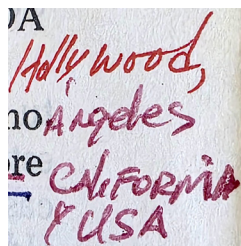 OA
Hollywood,
no Angeles
ore CALIFORNIA
Y USA